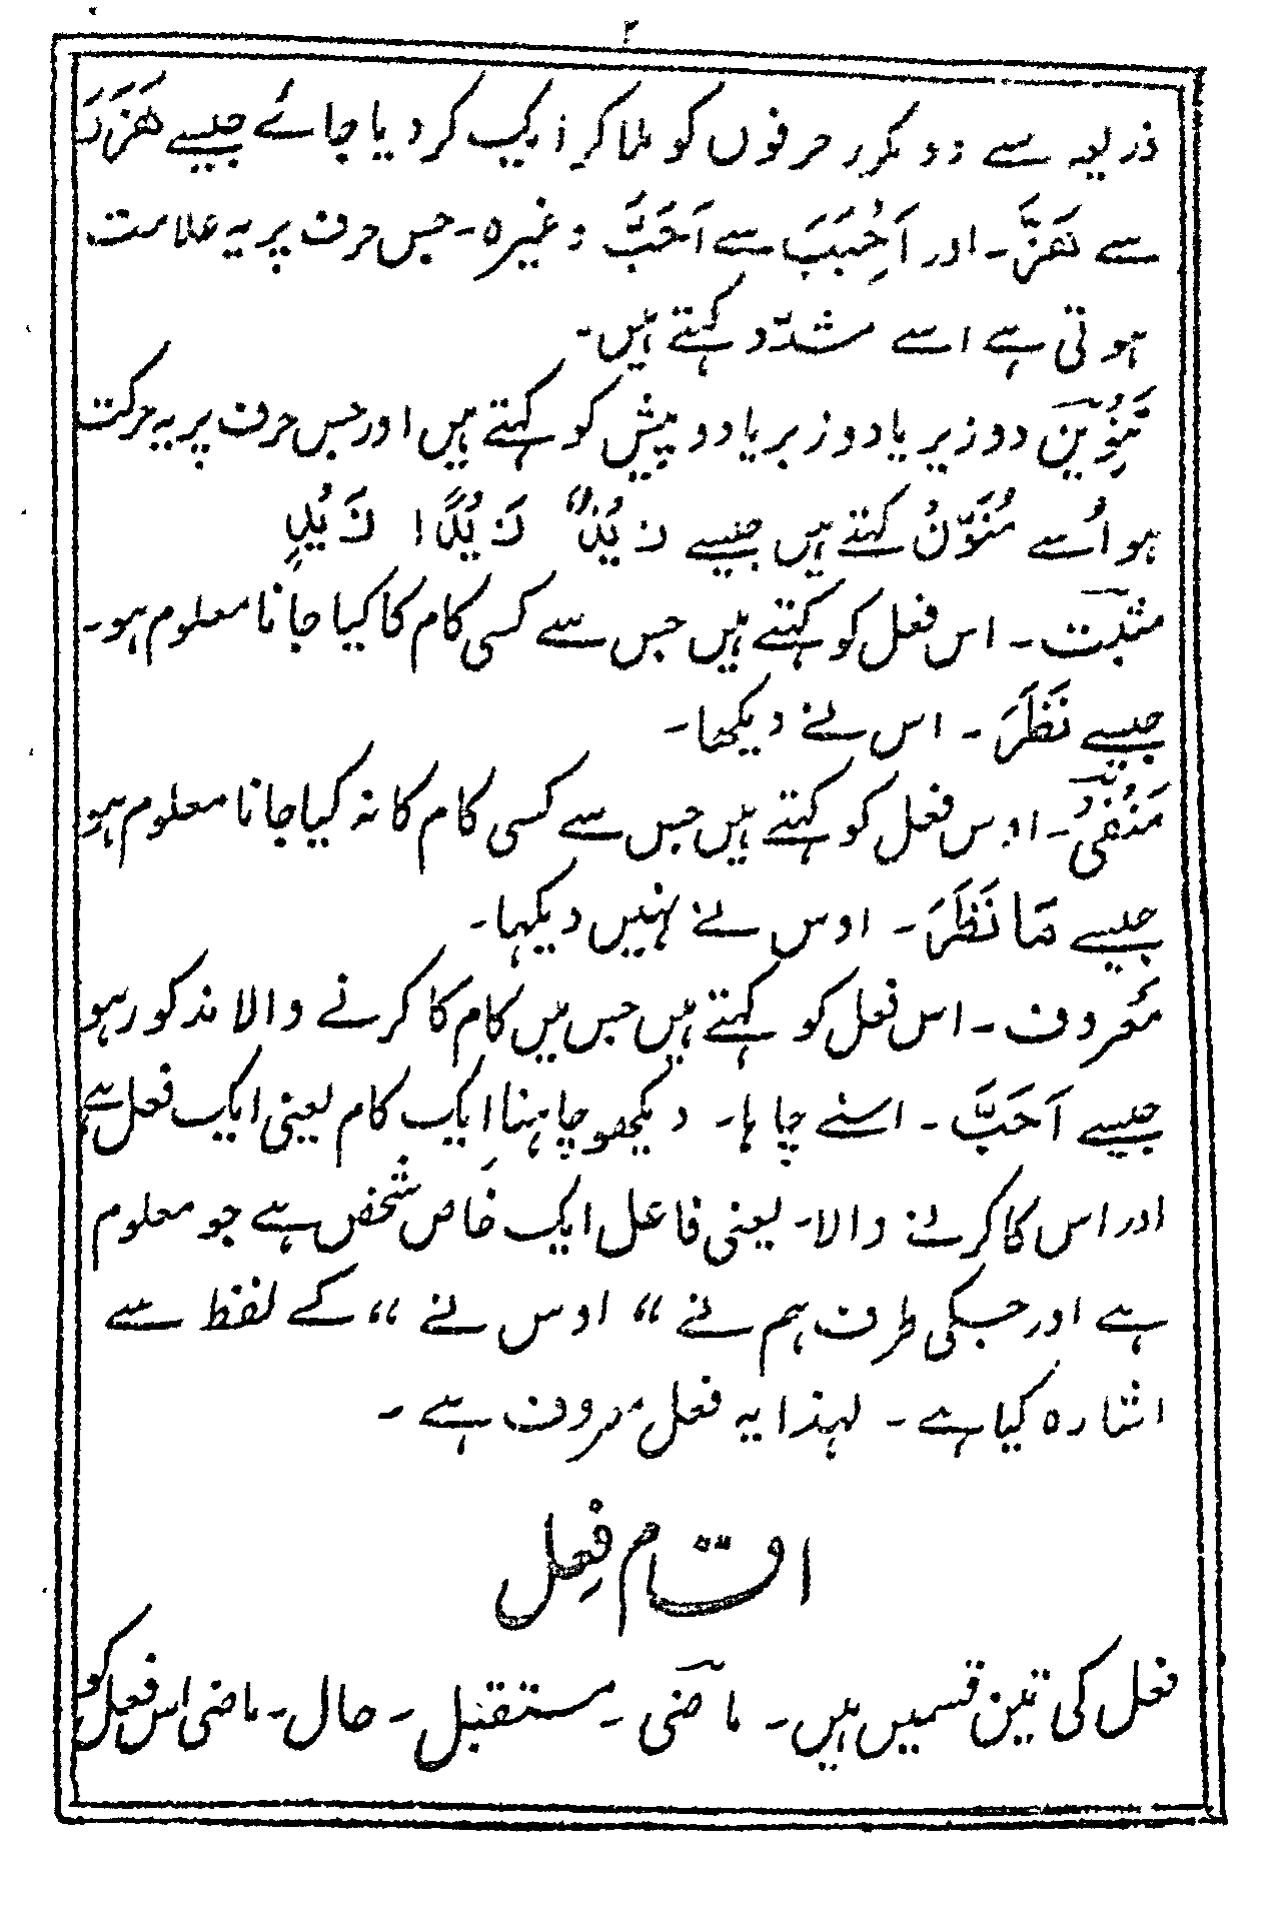 ۲
ذریعہ سے دو مکرر حرفوں کو ملا کر ایک کر دیا جائے جیسے هَزَزَ
سے هَزَّ۔ اور اَحْبَبَ سے اَحَبَّ وغیرہ۔ جس حرف پر یہ علامت
ہوتی ہے اسے مشدّد کہتے ہیں۔
تَنْوِیْن دو زیر یا دو زبر یا دو پیش کو کہتے ہیں اور جس حرف پر یہ حرکت
ہو اُسے مُنَوَّنْ کہتے ہیں جیسے زَیْدٌ زَیْدًا زَیْدٍ
مثبت۔ اس فعل کو کہتے ہیں جس سے کسی کام کا کیا جانا معلوم ہو۔
جیسے نَظَرَ۔ اس نے دیکھا۔
مَنْفِی۔ اوس فعل کو کہتے ہیں جس سے کسی کام کا نہ کیا جانا معلوم ہو
جیسے مَا نَظَرَ۔ اوس نے نہیں دیکہا۔
مَعروف۔ اس فعل کو کہتے ہیں جس میں کام کا کرنے والا مذکور ہو
جیسے اَحَبَّ۔ اسنے چاہا۔ دیکھو چاہنا ایک کام یعنی ایک فعل ہے
اور اس کا کرنے والا۔ یعنی فاعل ایک خاص شخص ہے جو معلوم
ہے اور جسکی طرف ہم نے “ اوس نے “ کے لفظ سے
اشارہ کیا ہے۔ لہذا یہ فعل معروف ہے۔
اقسام فِعل
فعل کی تین قسمیں ہیں۔ ماضی۔ مستقبل۔ حال۔ ماضی اس فعل کو